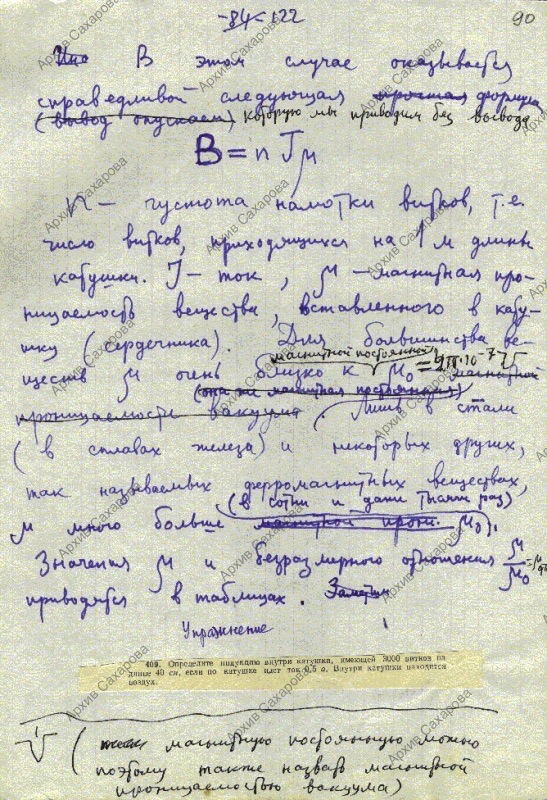 -84- 122
90
В этом случае оказывается
справедливой следующая простая формула
(вывод опускаем) которую мы приводим без вывода
B = n J μ
n — густота намотки витков, т.е.
число витков, приходящихся на 1 м длины
катушки. J — ток, μ — магнитная про-
ницаемость вещества, вставленного в кату-
шку (сердечника). Для большинства ве-
магнитной постоянной
ществ μ очень близко к μ₀ магнитной
(она же магнитная постоянная)
проницаемости вакуума. Лишь в стали
(в сплавах железа) и некоторых других,
так называемых ферромагнитных веществах,
(в сотни и даже тысячи раз)
μ много больше магнитной прони. μ₀).
Значения μ и безразмерного отношения μ/μ₀
приводятся в таблицах. Заметим
Упражнение
409. Определите индукцию внутри катушки, имеющей 3000 витков на
длине 40 см, если по катушке идет ток 0,5 а. Внутри катушки находится
воздух.
(магнитную постоянную можно
поэтому также назвать магнитной
проницаемостью вакуума)
Архив Сахарова